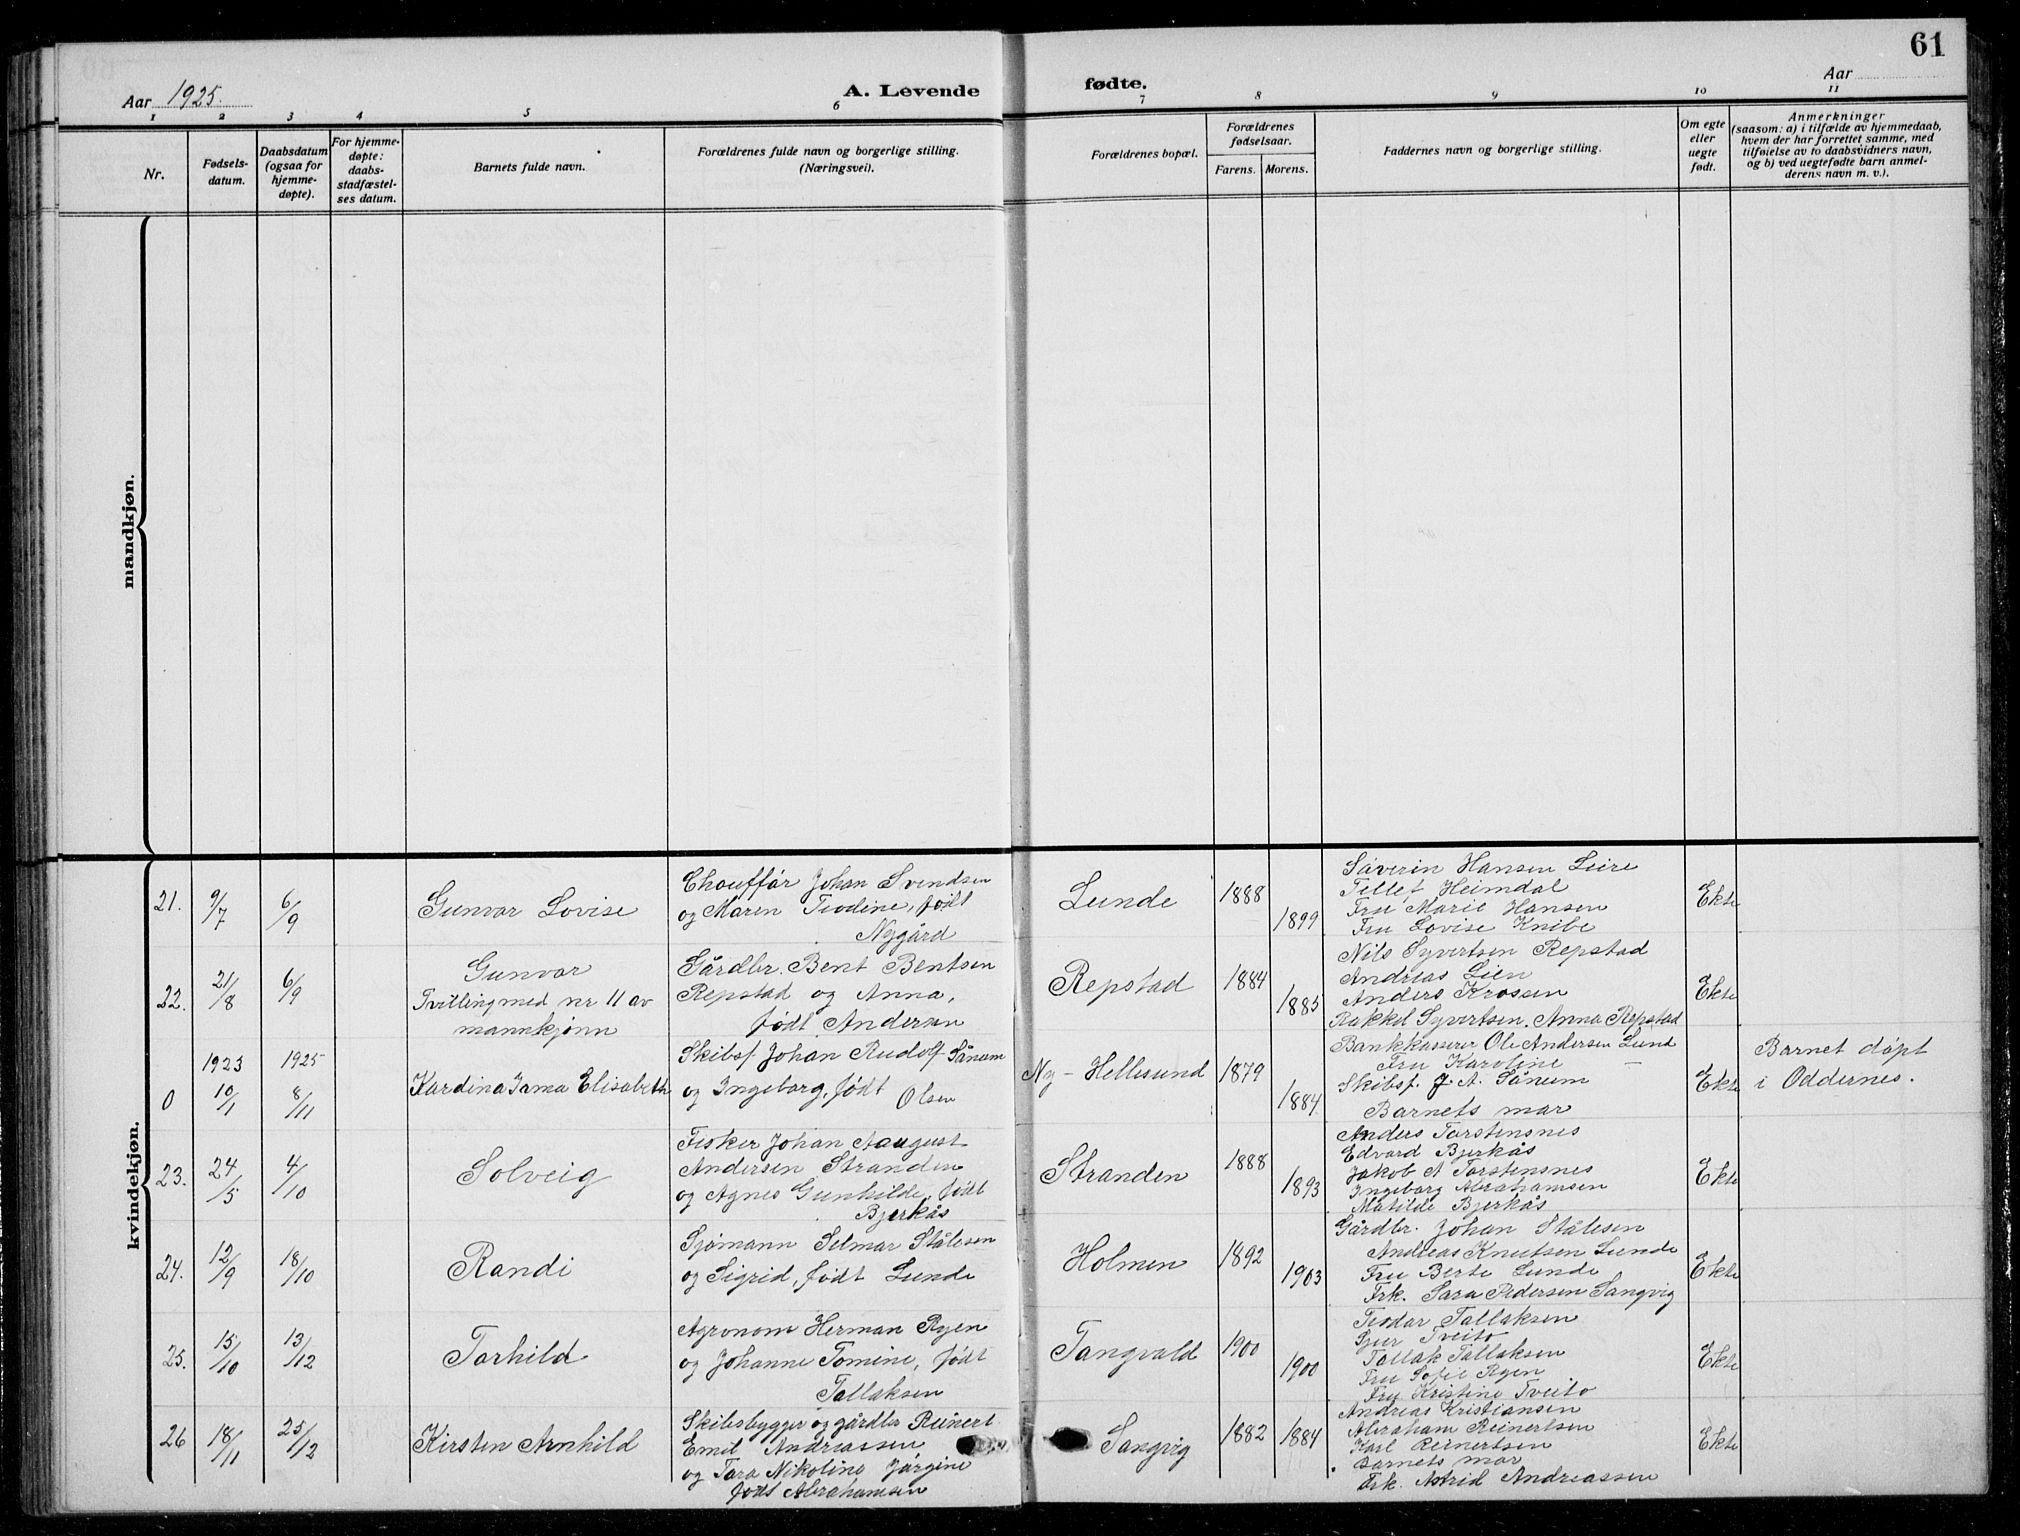 61
Aar 1925.
A. Levende
fødte.
Aar
1 2 3 4 5 6 7 8 9 10 11
Nr.
Fødsels-
datum.
Daabsdatum
(ogsaa for
hjemme-
døpte).
For hjemme-
døpte:
daabs-
stadfæstel-
ses datum.
Barnets fulde navn.
Forældrenes fulde navn og borgerlige stilling.
(Næringsvei).
Forældrenes bopæl.
Forældrenes
fødselsaar.
Farens. Morens.
Faddernes navn og borgerlige stilling.
Om egte
eller
uegte
født.
Anmerkninger
(saasom: a) i tilfælde av hjemmedaab,
hvem der har forrettet samme, med
tilføielse av to daabsvidners navn,
og b) ved uegtefødte barn anmel-
derens navn m. v.).
mandkjøn.
kvindekjøn.
21.
9/7
6/9
Gunvor Lovise
Chouffør Johan Svendsen
og Maren Teodine, født
Nygård
Lunde
1888
1899
Såverin Hansen Leire
Tellef Heimdal
Fru Marie Hansen
Fru Lovise Knibe
Ekte
22.
21/8
6/9
Gunvor
Tvilling med nr 11 av
mannkjønn
Gårdbr. Bent Bentsen
Repstad og Anna,
født Andersen
Repstad
1884
1885
Nils Syvertsen Repstad
Andreas Lien
Anders Krossen
Rakkel Syvertsen. Anna Repstad
Ekte
0
1923
10/1
1925
8/11
Kardina Jama Elisabeth
Skibsf. Johan Rudolf Sånum
og Ingeborg, født
Olsen
Ny-Hellesund
1879
1884
Bankkasserer Ole Andersen Lund
Fru Karoline —
Skibsf. J. A. Sånum
Barnets mor
Ekte
Barnet døpt
i Oddernes.
23.
24/5
4/10
Solveig
Fisker Johan August
Andersen Stranden
og Agnes Gunhilde, født
Bjerkås
Stranden
1888
1893
Anders Torstensnes
Edvard Bjerkås
Jakob A Torstensnes
Ingeborg Abrahamsen
Matilde Bjerkås
Ekte
24.
12/9
18/10
Randi
Sjømann Selmar Stålesen
og Sigrid, født Lunde
Holmen
1892
1903
Gårdbr. Johan Stålesen
Andreas Knutsen Lunde
Fru Berte Lunde
Frk. Sara Pedersen Sangvig
Ekte
25.
15/10
13/12
Torhild
Agronom Herman Ryen
og Johanne Tomine, født
Tallaksen
Tangvald
1900
1900
Teodor Tallaksen
Sjur Tveito
Tallak Tallaksen
Fru Sofie Ryen
Fru Kristine Tveito
Ekte
26
18/11
25/12
Kirsten Arnhild
Skibsbygger og gårdbr Reinert
Emil Andreassen
og Tora Nikoline Jørgine
født Abrahamsen
Sangvig
1882
1884
Andreas Kristiansen
Abraham Reinertsen
Karl Reinertsen
Barnets mor
Frk. Astrid Andreassen
Ekte